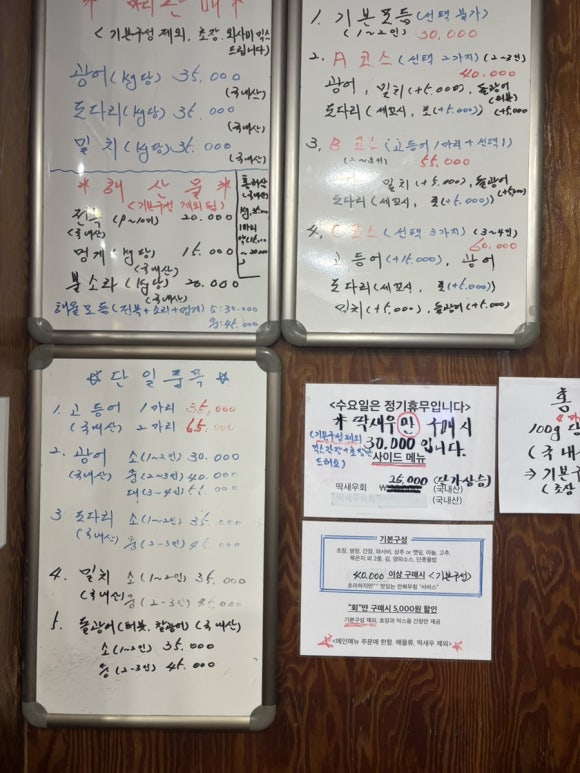 <기본구성 제외, 초장, 와사비 믹스
드립니다>
광어(kg당) 35.000
(국내산)
도다리(kg당) 35.000
(국내산)
밀치(kg당) 35.000
(국내산)
* 해산물 *
<기본구성 제외됨>
전복(9~10미) 20.000
(국내산)
멍게(kg당) 15.000
(국내산)
뿔소라(1kg당) 20.000
(국내산)
해물모듬(전복+소라+멍게) 소:30.000
중:45.000
1. 기본모듬(선택 불가)
(1~2인) 30,000
2. A 코스(선택 2가지)(2~3인)
40.000
광어, 밀치(+5.000), 돌광어
도다리(세꼬시, 포(+5.000)) +5.000
3, B 코스(고등어 1마리+선택1)
(2~3인) 55.000
밀치(+5.000), 돌광어
도다리(세꼬시, 포(+5.000)) (+5.000)
4, C 코스(선택 3가지)(3~4인)
60.000
고등어(+15.000), 광어
도다리(세꼬시, 포(+5.000)
밀치(+5.000), 돌광어(+5.000)
☆ 단일품목 ☆
1. 고등어 1마리 35,000
(국내산) 2마리 65.000
2. 광어 소(1~2인) 30.000
(국내산) 중(2~3인) 40.000
대(3~4인) 55.000
3 도다리 소(1~2인) 35.000
(국내산) 중(2~3인) 45.000
4. 밀치 소(1~2인) 35.000
(국내산) 중(2~3인) 45.000
5. 돌광어(터봇, 찰광어)(국내산)
소(1~2인) 35.000
중(2~3인) 45.000
<수요일은 정기휴무입니다>
* 딱새우만 구매시
(기본구성 제외
30.000입니다.
믹스간장+초장만
드려요)
사이드 메뉴
딱새우회 26,000 (단가상승)
(국내산)
(국내산)
기본구성
초장, 쌈장, 간장, 와사비, 상추 or 깻잎, 마늘, 고추,
묵은지 외 2종, 김, 양파소스, 단촛물밥
40.000 이상 구매시 <기본구성>
초라하지만^^ 맛있는 전복무침 "서비스"
"회"만 구매시 5,000원 할인
기본구성 제외, 초장과 믹스용 간장만 제공
<메인메뉴 주문에 한함. 해물류, 딱새우 제외>
홍
100g 당
(국내
⇒ 기본구
(초장